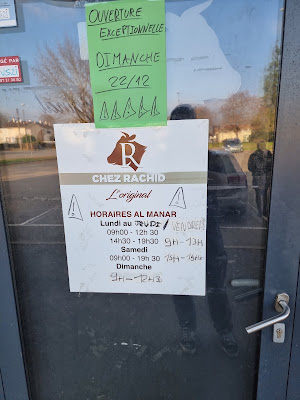 OUVERTURE
EXCEPTIONNELLE
DIMANCHE
22/12
R
CHEZ RACHID
L'original
HORAIRES AL MANAR
Lundi au JEUDI / VENDREDI
09h00 - 12h 30
14h30 - 19h30 9H-13H
Samedi
09h00 - 19h 30
Dimanche
9H - 12H30